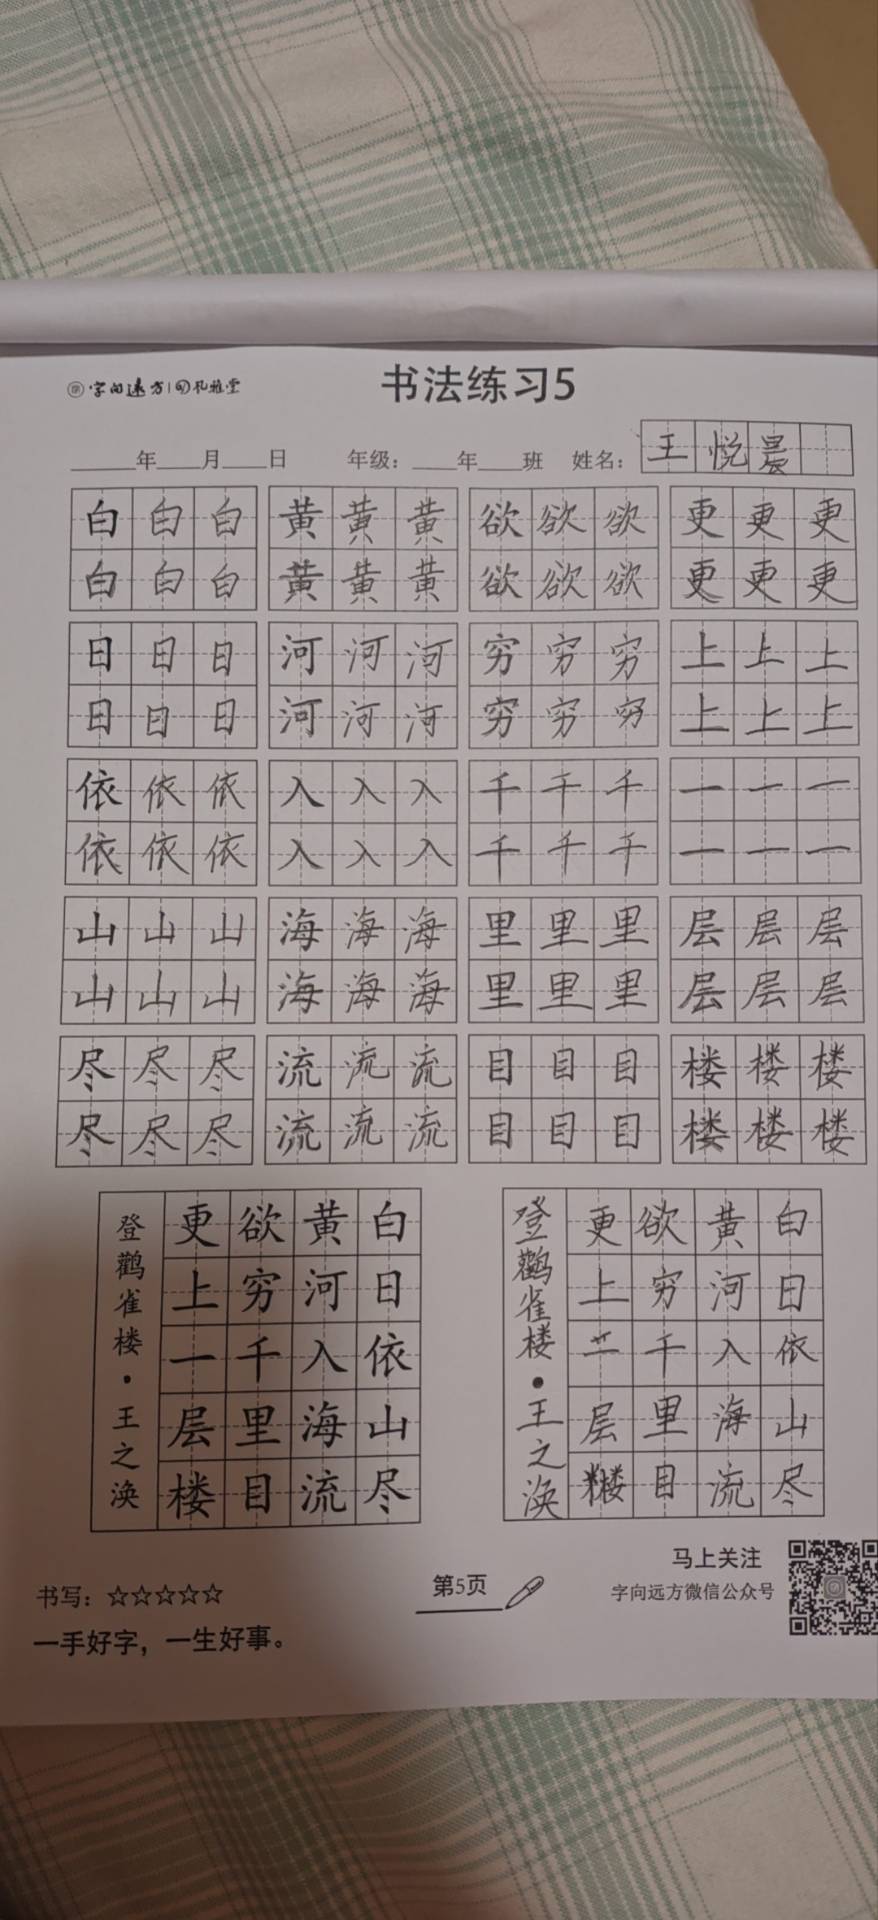 字向远方 礼雅堂
书法练习5
年 月 日 年级: 年 班 姓名: 王悦晨
白白白 黄黄黄 欲欲欲 更更更
白白白 黄黄黄 欲欲欲 更更更
日日日 河河河 穷穷穷 上上上
日日日 河河河 穷穷穷 上上上
依依依 入入入 千千千 一一一
依依依 入入入 千千千 一一一
山山山 海海海 里里里 层层层
山山山 海海海 里里里 层层层
尽尽尽 流流流 目目目 楼楼楼
尽尽尽 流流流 目目目 楼楼楼
白日依山尽
黄河入海流
欲穷千里目
更上一层楼
登鹳雀楼·王之涣
白日依山尽
黄河入海流
欲穷千里目
更上一层楼
登鹳雀楼·王之涣
书写:☆☆☆☆☆
一手好字，一生好事。
第5页
马上关注
字向远方微信公众号